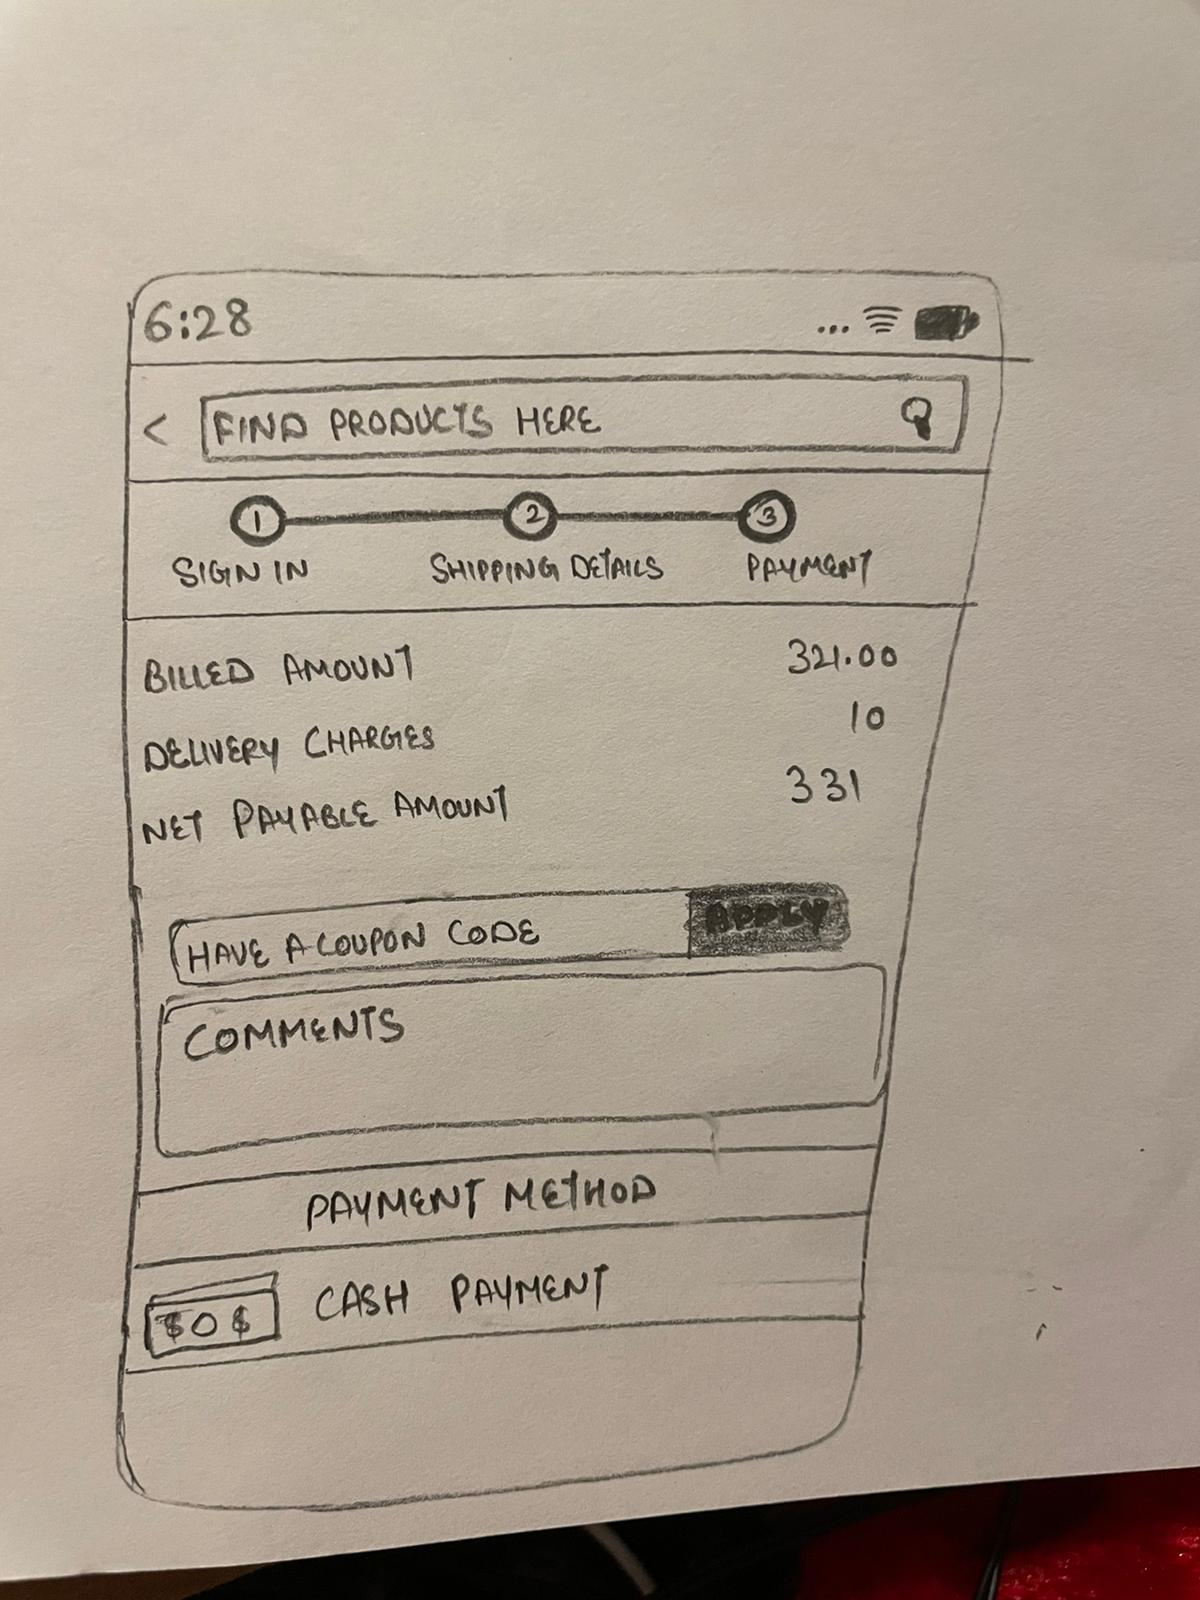 6:28 ...
< FIND PRODUCTS HERE
1 2 3
SIGN IN SHIPPING DETAILS PAYMENT
BILLED AMOUNT 321.00
DELIVERY CHARGES 10
NET PAYABLE AMOUNT 331
HAVE A COUPON CODE APPLY
COMMENTS
PAYMENT METHOD
$0$ CASH PAYMENT